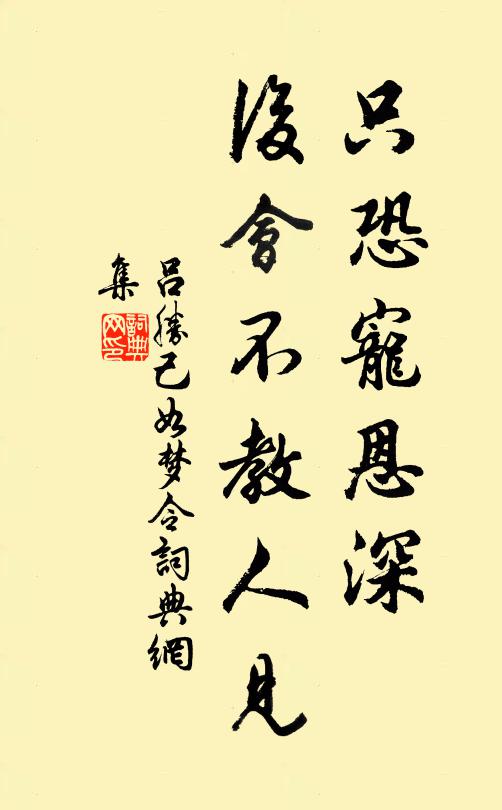 只恐寵恩深
後會不教人見
呂勝己如梦令詞典網
集
詞典
网印